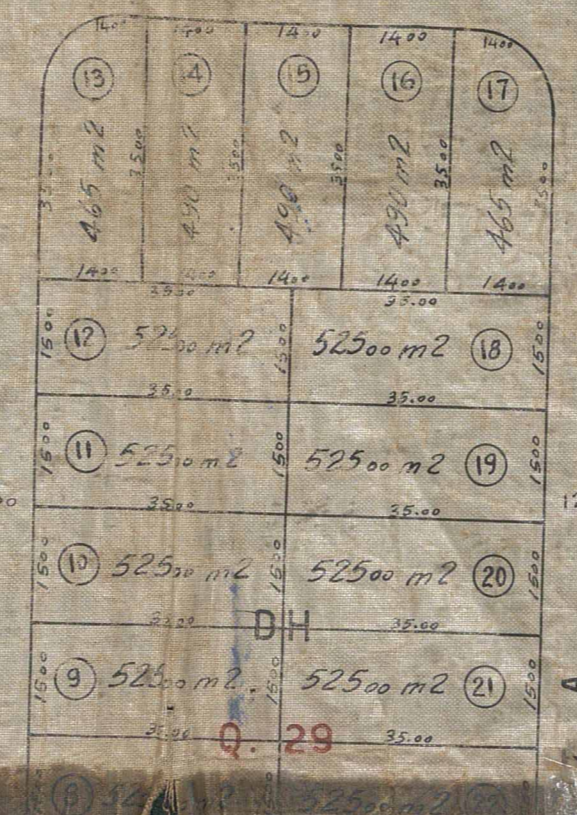 1400 1400 1400 1400 1400
13 14 15 16 17
3500 3500 3500 3500 3500 3500
465 m2 490 m2 490 m2 490 m2 465 m2
1400 1400 1400 1400 1400
35.00 35.00
1500 12 52500 m2 1500 52500 m2 18 1500
35.00 35.00
1500 11 52500 m2 1500 52500 m2 19 1500
35.00 35.00
1500 10 52500 m2 1500 52500 m2 20 1500
35.00 DH 35.00
1500 9 52500 m2 1500 52500 m2 21 1500
35.00 Q. 29 35.00
8 52500 m2 52500 m2
A